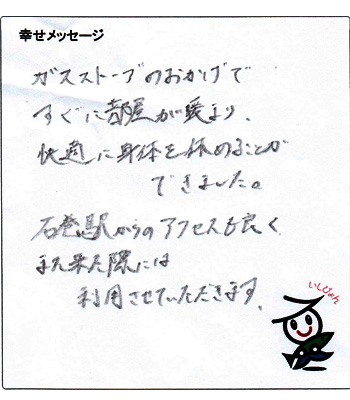 幸せメッセージ
ガスストーブのおかげで
すぐに部屋が暖まり、
快適に身体を休めることが
できました。
石巻駅からのアクセスも良く
また来た際には
利用させていただきます。
いしぴょん